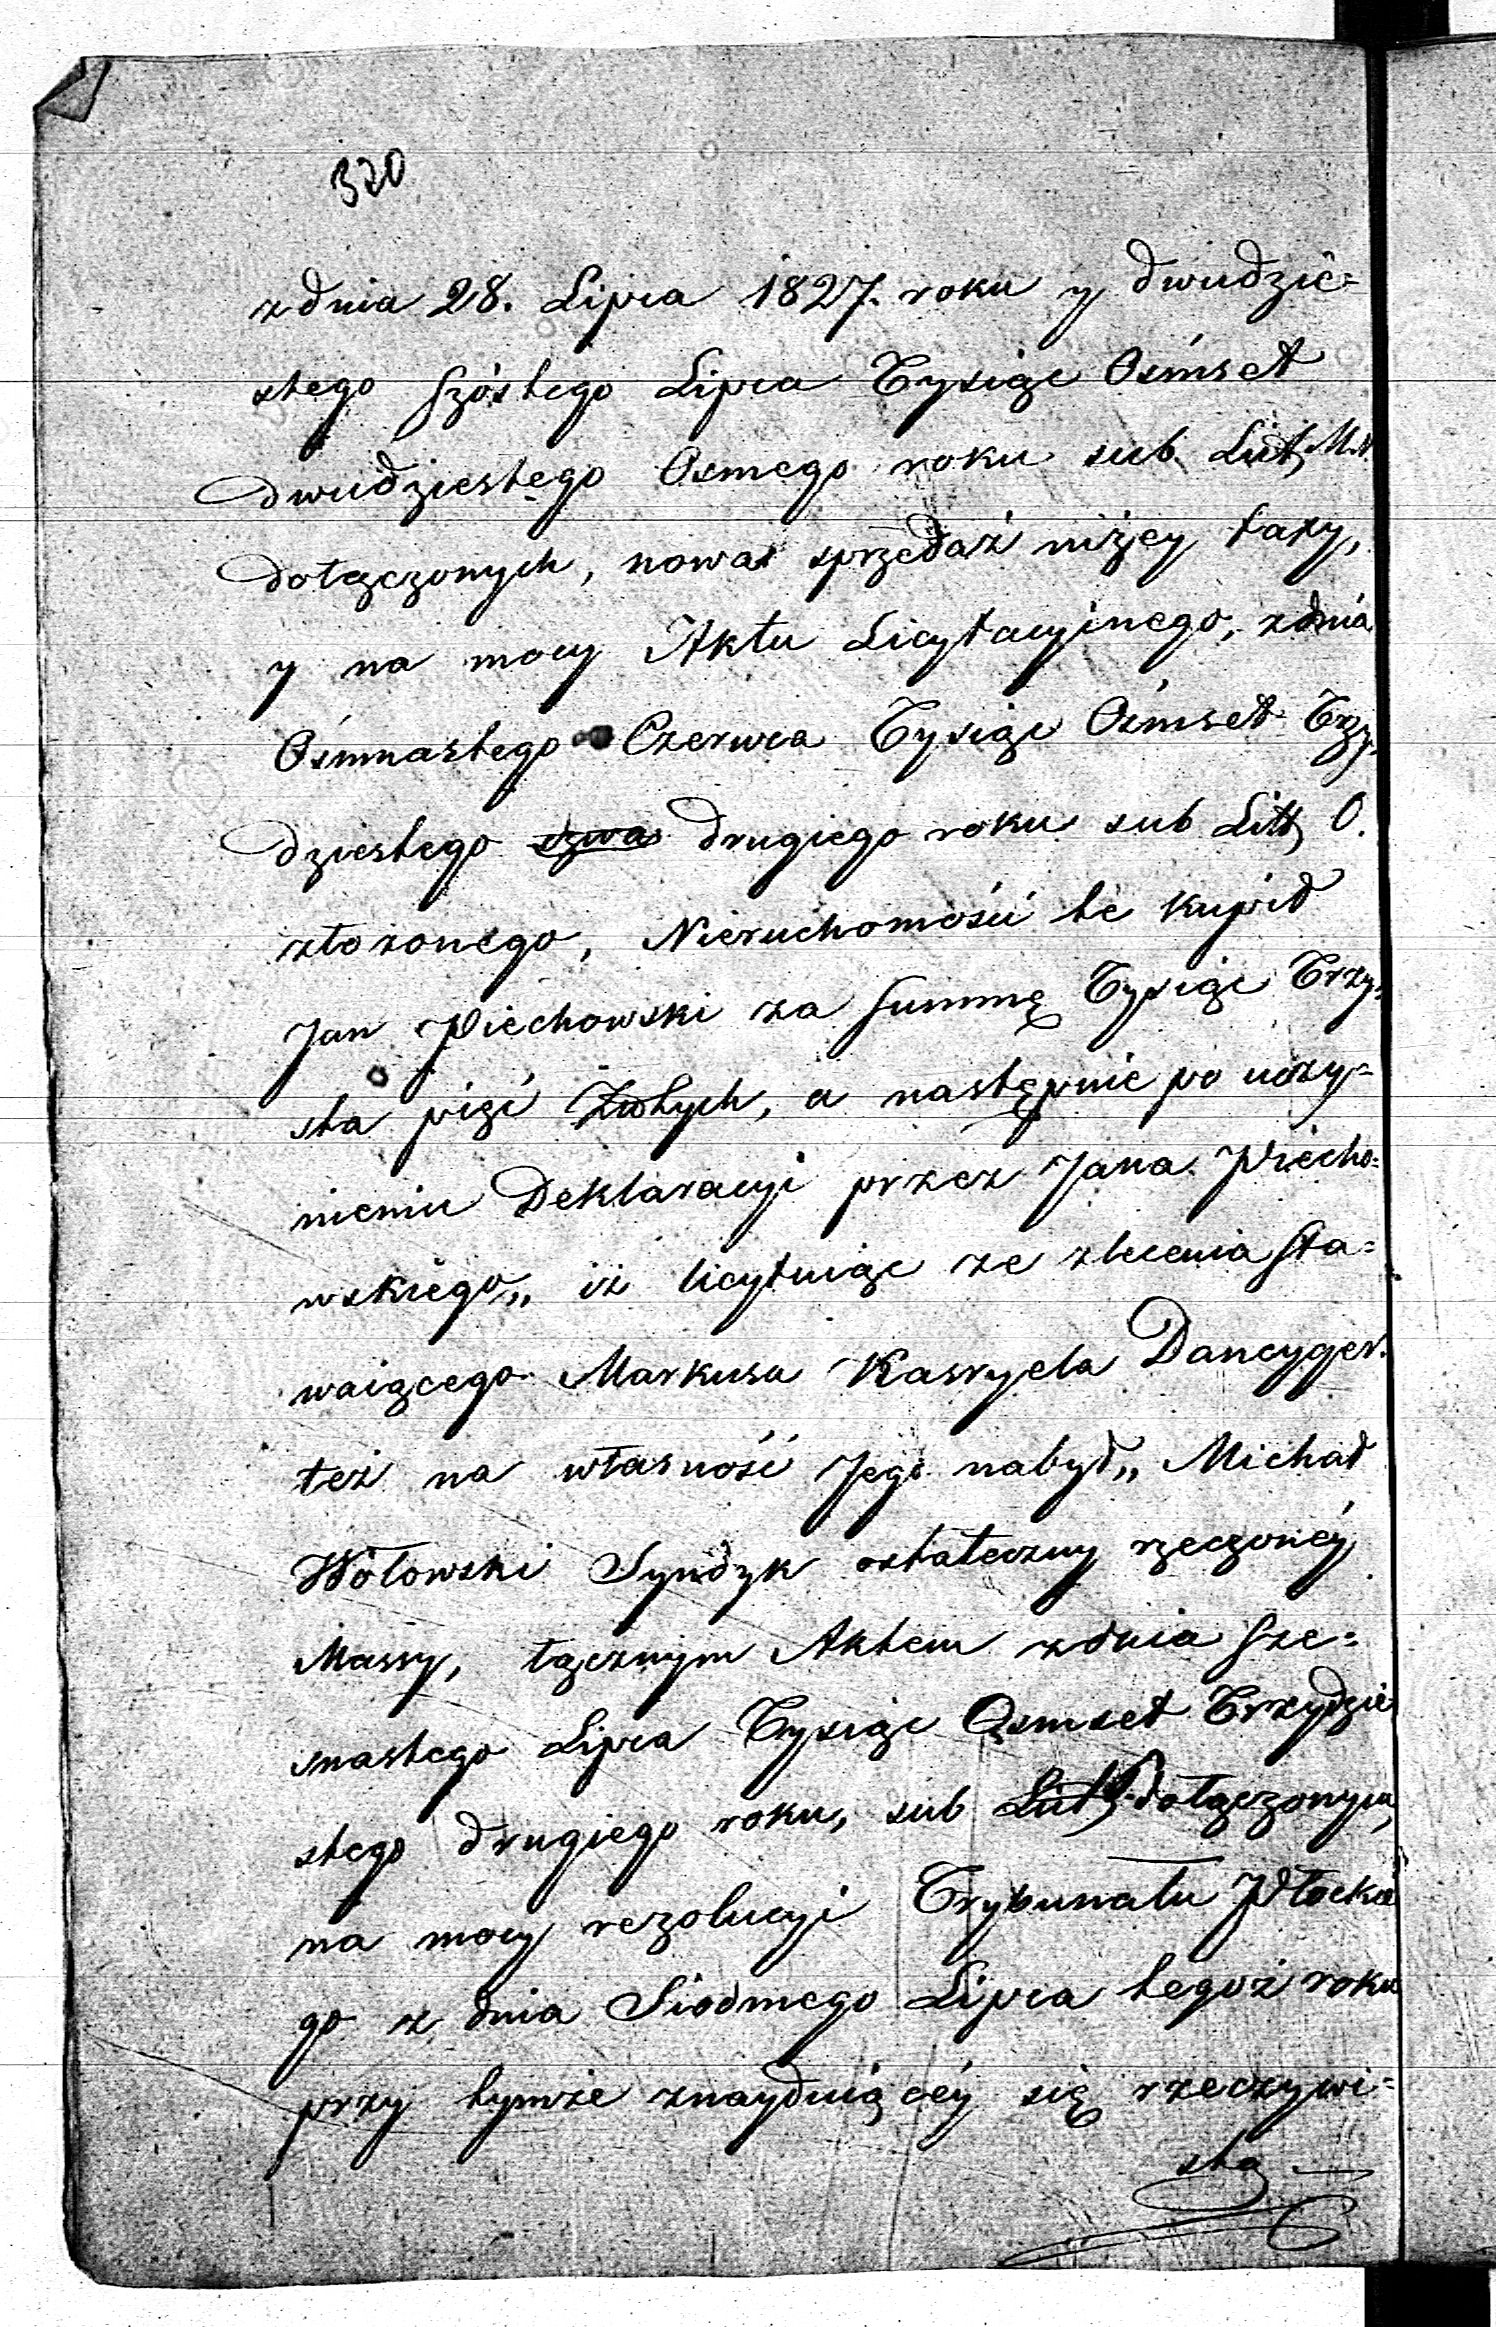 320
z dnia 28. Lipca 1827. roku y dwudzie=
stego szóstego Lipca Tysiąc Ośmset
dwudziestego Osmego roku sub Litt, M.N.
dołączonych, nowa sprzedaż niżey taxy,
y na mocy Aktu Licytacyinego, z dnia
Ośmnastego Czerwca Tysiąc Ośmset Trzy-
dziestego drugiego roku sub Litt, O.
złożonego, Nieruchomości te kupił
Jan Piechowski za summę Tysiąc Trzy=
sta pięć Złotych, a następnie po uczy=
nieniu Deklaracyi przez Jana Piecho=
wskiego,, iż licytuiąc ze zlecenia sta=
waiącego Markusa Kasryela Dancyger.
też na własność Jego nabył,, Michał
Wołowski Syndyk ostateczny rzeczonéy
Massy, łącznym Aktem z dnia sze=
snastego Lipca Tysiąc Osmset Trzydzie
stego drugiego roku, sub Litt, dołączonym,
na mocy rezolucyi Trybunału Płockie
go z dnia Siodmego Lipca tegoż roku
przy tymże znayduiącéy się rzeczywi=
sta